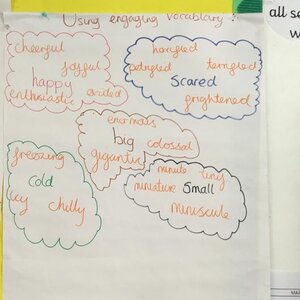 Using engaging vocabulary
cheerful
joyful
happy
enthusiastic excited
horrified
petrified terrified
Scared
frightened
enormous
big colossal
gigantic
freezing
cold
icy chilly
minute tiny
miniature Small
miniscule
all se
w